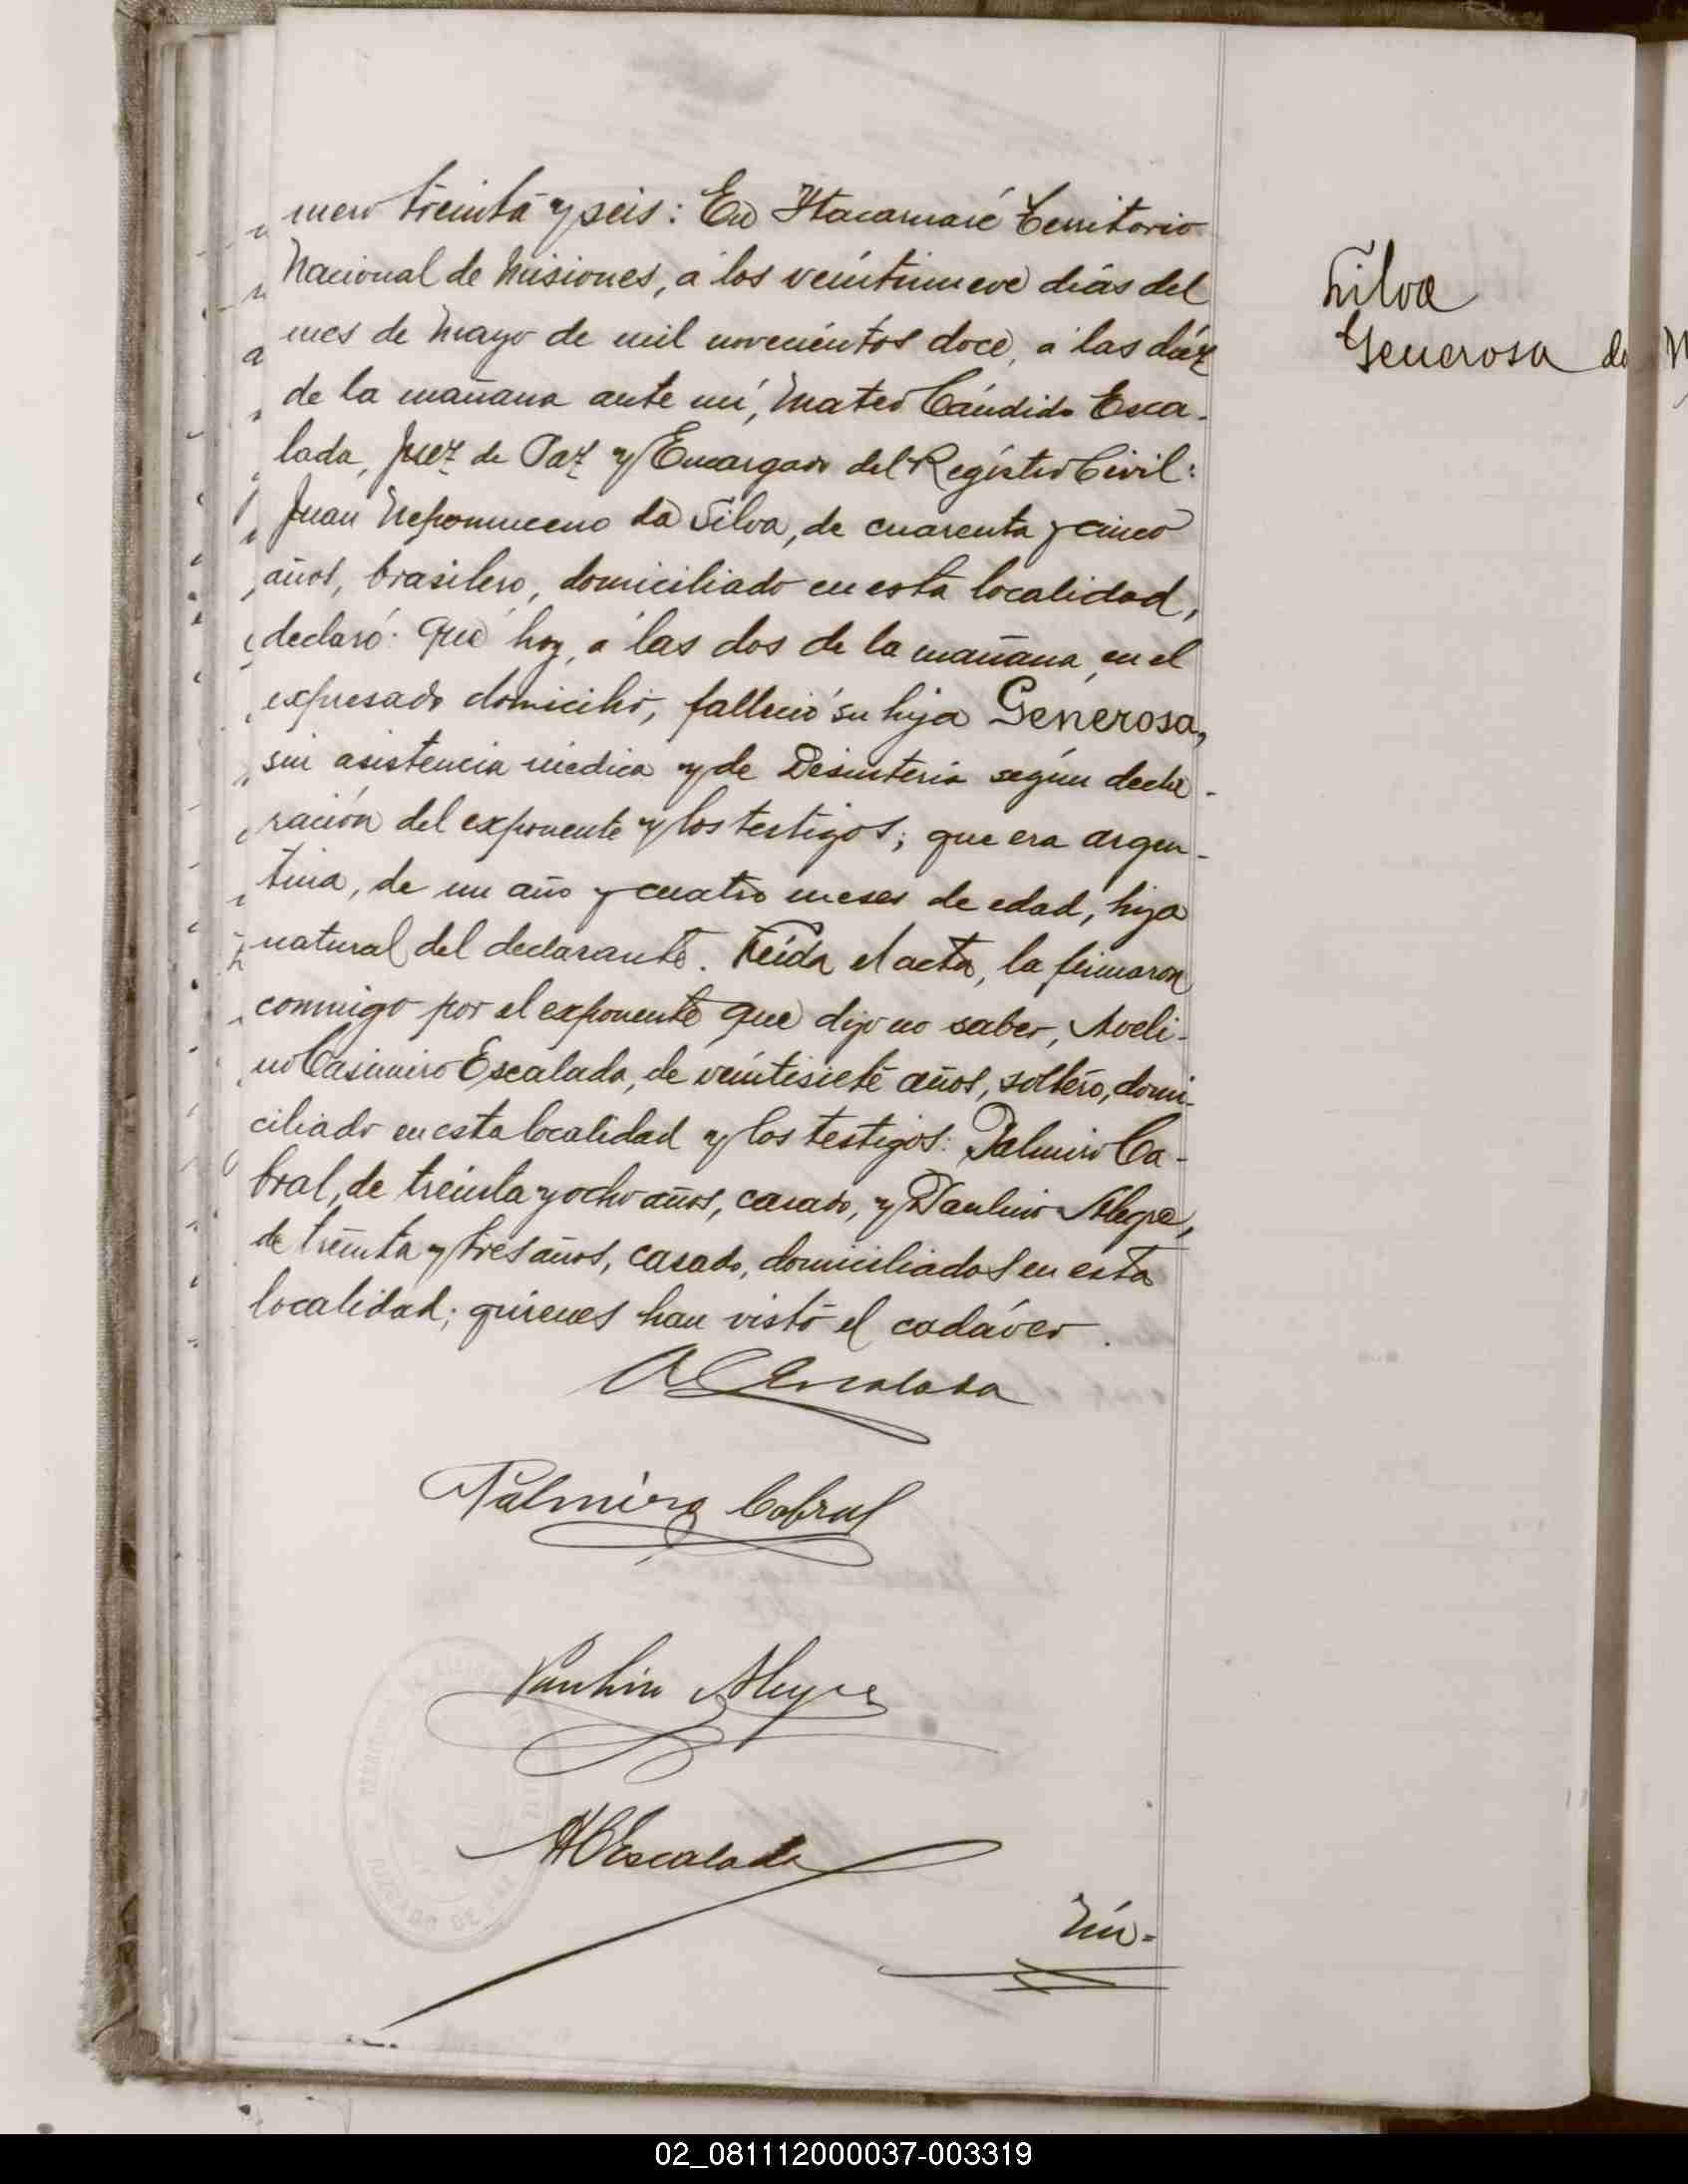 mero treinta y seis: En Itacaruaré Territorio
Nacional de Misiones, a los veintinueve días del
mes de Mayo de mil novecientos doce, a las diéz
de la mañana ante mí, Mateo Cándido Esca-
lada, Juez de Paz y Encargado del Registro Civil:
Juan Nepomuceno da Silva, de cuarenta y cinco
años, brasilero, domiciliado en esta localidad,
declaró: Que hoy, a las dos de la mañana, en el
expresado domicilio, falleció su hija Generosa,
sin asistencia médica y de Desinteria según decla-
ración del exponente y los testigos; que era argen-
tina, de un año y cuatro meses de edad, hija
natural del declarante. Leída el acta, la firmaron
conmigo por el exponente que dijo no saber, Aveli-
no Casimiro Escalada, de veintisiete años, soltero, domi-
ciliado en esta localidad y los testigos: Palmiro Ca-
bral, de treinta y ocho años, casado, y Paulino Alegre,
de treinta y tres años, casado, domiciliados en esta
localidad; quienes han visto el cadáver.
A C Escalada
Palmiro Cabral
Paulino Alegre
M C Escalada
Nú-
Silva
Generosa da
JUZGADO DE PAZ
02_081112000037-003319